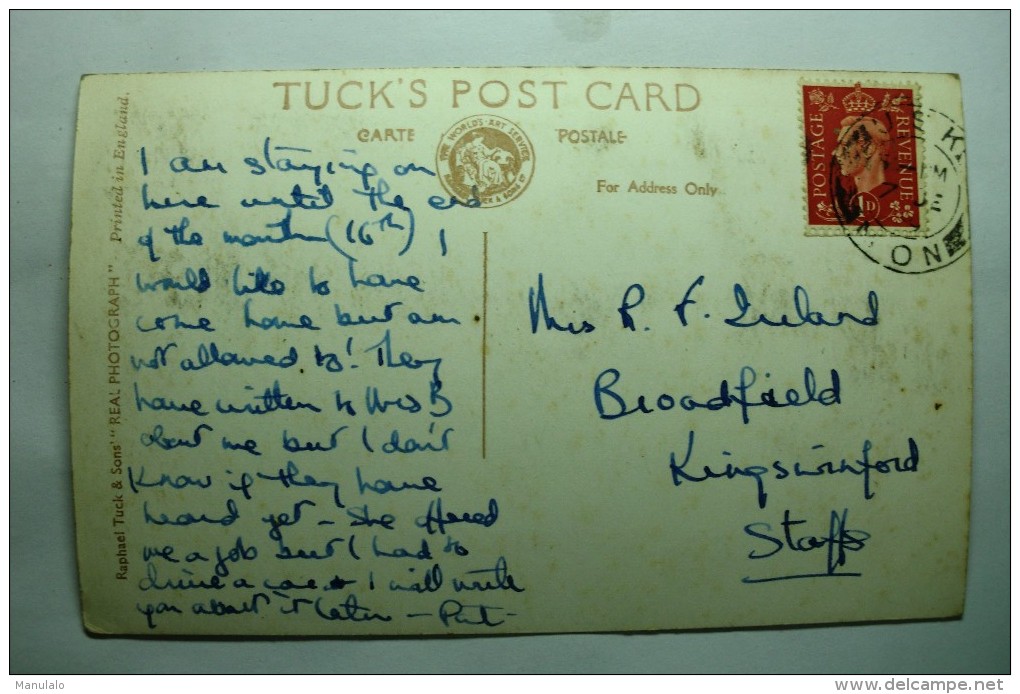 TUCK'S POST CARD
CARTE POSTALE
THE WORLD'S ART SERVICE
RAPHAEL TUCK & SONS LTD
For Address Only
POSTAGE REVENUE
1D
ON
Raphael Tuck & Sons' "REAL PHOTOGRAPH" Printed in England.
I am staying on
here until the end
of the month (16th) I
would like to have
come home but am
not allowed to! They
have written to Mrs B
about me but I don't
know if they have
heard yet – she offered
me a job but I had to
drive a car & I will write
you about it later – Pat –
Mrs R. F. Ireland
Broadfield
Kingswinford
Staffs
Manulalo
www.delcampe.net